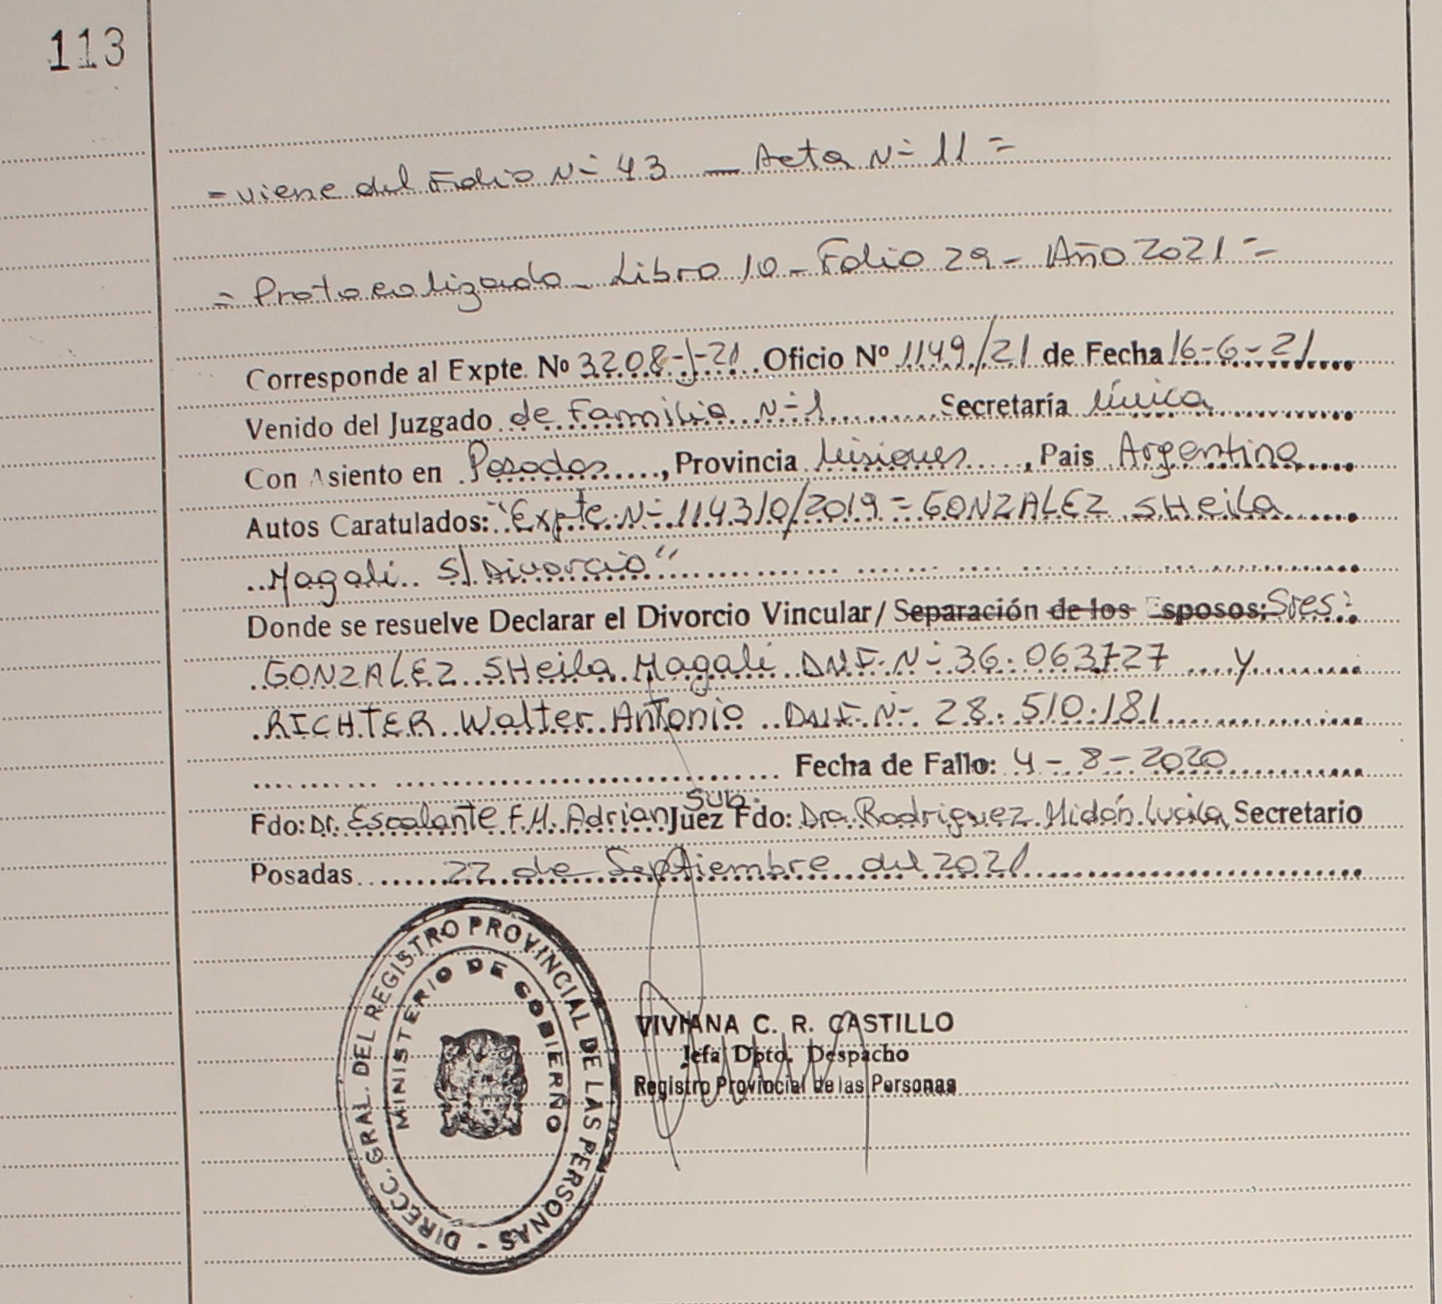 113
= viene del Folio N= 43 — Acta N= 11 =
= Protocolizado - Libro 10 - Folio 29 - Año 2021 =
Corresponde al Expte. Nº 3208-J-21 Oficio Nº 1149/21 de Fecha 16-6-21
Venido del Juzgado de Familia N=1 Secretaría Única
Con Asiento en Posadas, Provincia Misiones, Pais Argentina
Autos Caratulados: "Expte N= 114310/2019 = GONZALEZ SHeila
Magali s/ Divorcio"
Donde se resuelve Declarar el Divorcio Vincular/ Separación de los Esposos; Sres:
GONZALEZ SHeila Magali DNI. N= 36.063727 y
RICHTER Walter Antonio DNI. N= 28.510.181
Fecha de Fallo: 4-8-2020
Sub.
Fdo: Dr. Escalante F.H. Adrian Juez Fdo: Dra. Rodriguez Midón Lucila, Secretario
Posadas 22 de Septiembre del 2021
DIRECC. GRAL. DEL REGISTRO PROVINCIAL DE LAS PERSONAS -
MINISTERIO DE GOBIERNO
VIVIANA C. R. CASTILLO
Jefa Dpto. Despacho
Registro Provincial de las Personas